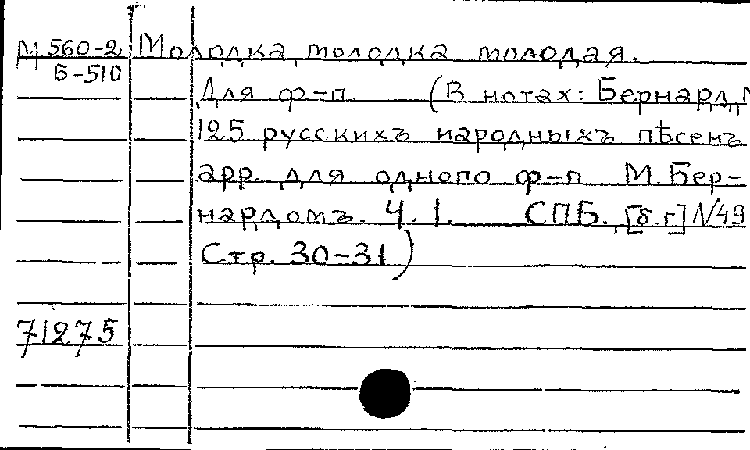 М 560-2 Молодка, молодка молодая.
Б-510
Для ф-п. (В нотах: Бернард,
125 русскихъ народныхъ пѣсенъ
арр. для одного ф-п М. Бер-
нардомъ. Ч. 1. СПБ., [б.г.] №49
Стр. 30-31)
71275